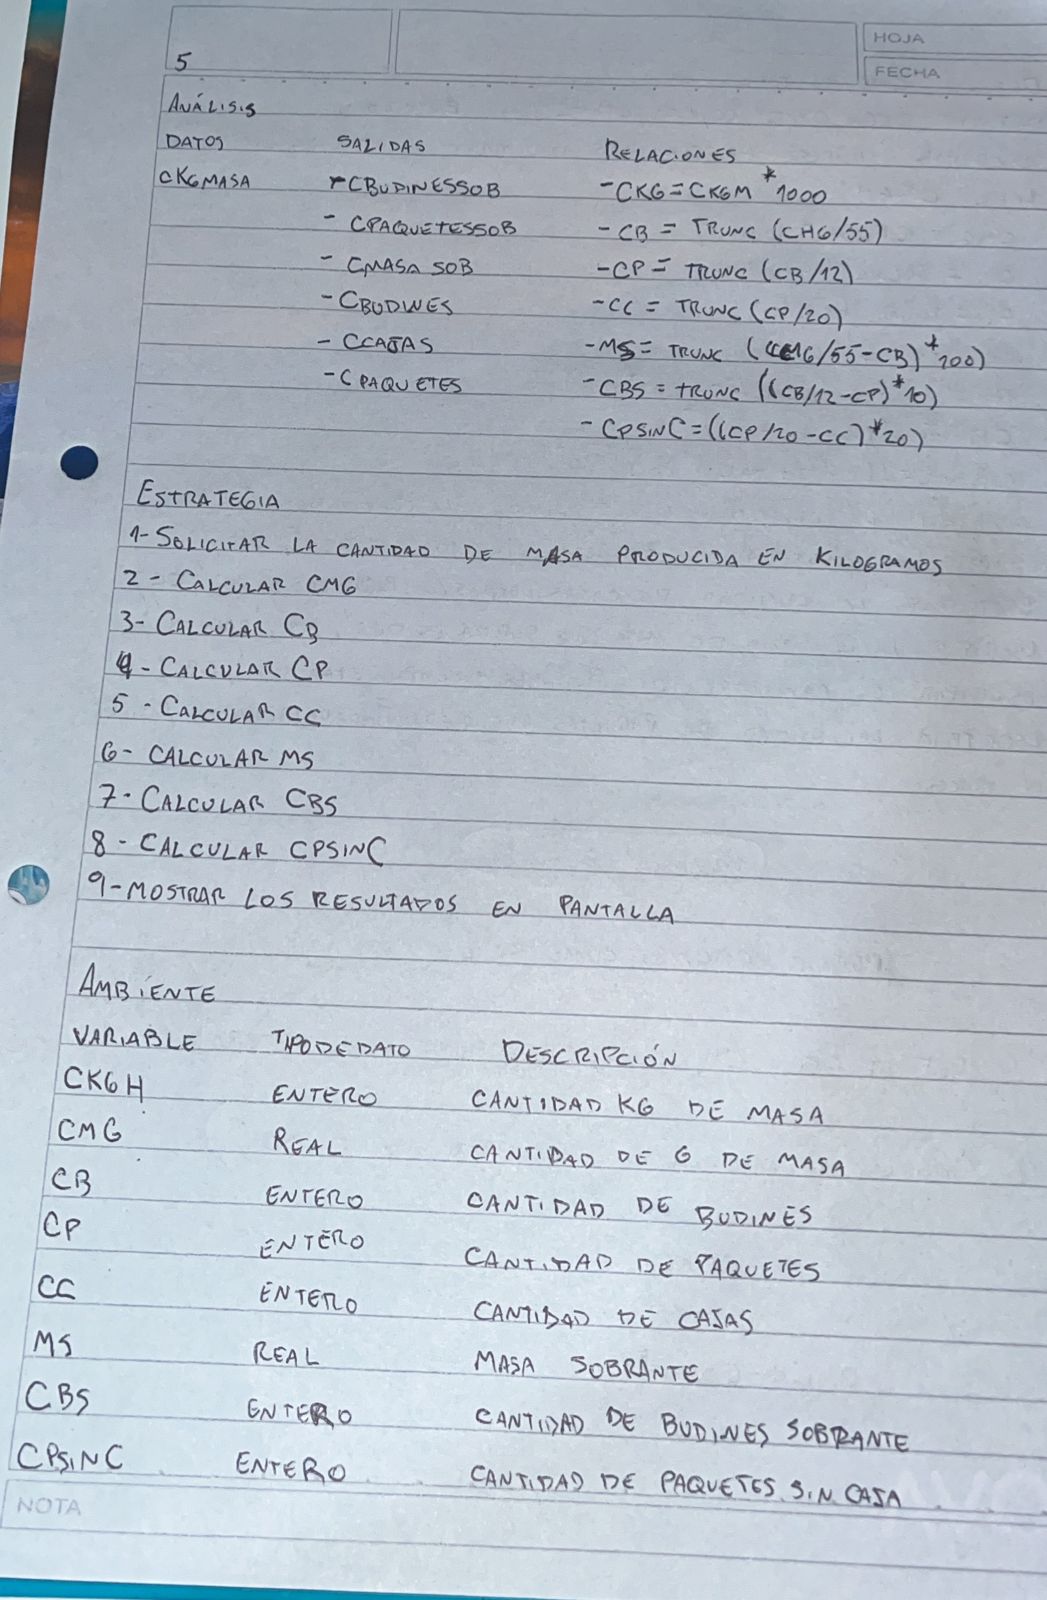 HOJA
5
FECHA
ANÁLISIS
DATOS SALIDAS RELACIONES
CKGMASA - CBUDINESSOB - CKG = CKGM * 1000
- CPAQUETESSOB - CB = TRUNC (CHG/55)
- CMASA SOB - CP = TRUNC (CB/12)
- CBUDINES - CC = TRUNC (CP/20)
- CCAJAS - MS = TRUNC ((CMG/55-CB) * 100)
- CPAQUETES - CBS = TRUNC ((CB/12-CP) * 10)
- CPSINC = ((CP/20-CC) * 20)
ESTRATEGIA
1- SOLICITAR LA CANTIDAD DE MASA PRODUCIDA EN KILOGRAMOS
2 - CALCULAR CMG
3- CALCULAR CB
4 - CALCULAR CP
5 - CALCULAR CC
6 - CALCULAR MS
7 - CALCULAR CBS
8 - CALCULAR CPSINC
9 - MOSTRAR LOS RESULTADOS EN PANTALLA
AMBIENTE
VARIABLE TIPO DE DATO DESCRIPCIÓN
CKGH ENTERO CANTIDAD KG DE MASA
CMG REAL CANTIDAD DE G DE MASA
CB ENTERO CANTIDAD DE BUDINES
CP ENTERO CANTIDAD DE PAQUETES
CC ENTERO CANTIDAD DE CAJAS
MS REAL MASA SOBRANTE
CBS ENTERO CANTIDAD DE BUDINES SOBRANTE
CPSINC ENTERO CANTIDAD DE PAQUETES SIN CAJA
NOTA